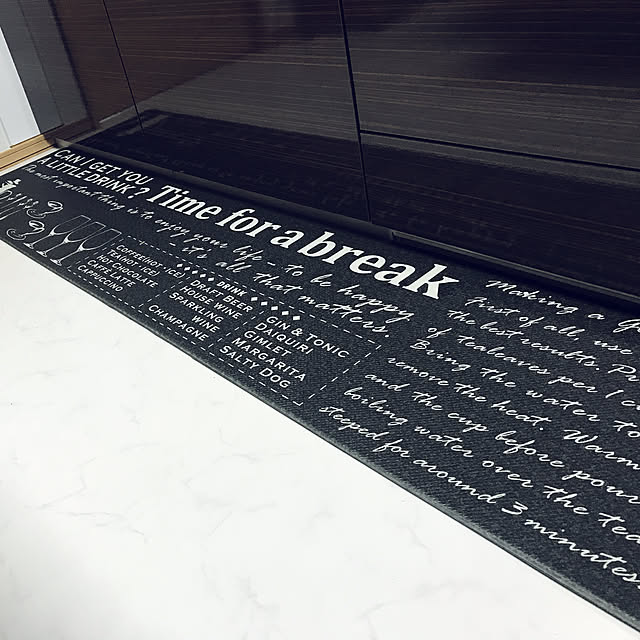 CAN I GET YOU
A LITTLE DRINK?
Time for a break
The most important thing is to enjoy your life - to be happy
it's all that matters
DRINK
COFFEE(HOT/ICE)
TEA(HOT/ICE)
HOT CHOCOLATE
CAFFE LATTE
CAPPUCCINO
DRAFT BEER
HOUSE WINE
SPARKLING
WINE
CHAMPAGNE
GIN & TONIC
DAIQUIRI
GIMLET
MARGARITA
SALTY DOG
Making a
First of all, use
the best results. 
of tealeaves per 1
Bring the water to
remove the heat. Warm
and the cup before pour
boiling water over the tea
steeped for around 3 minutes.